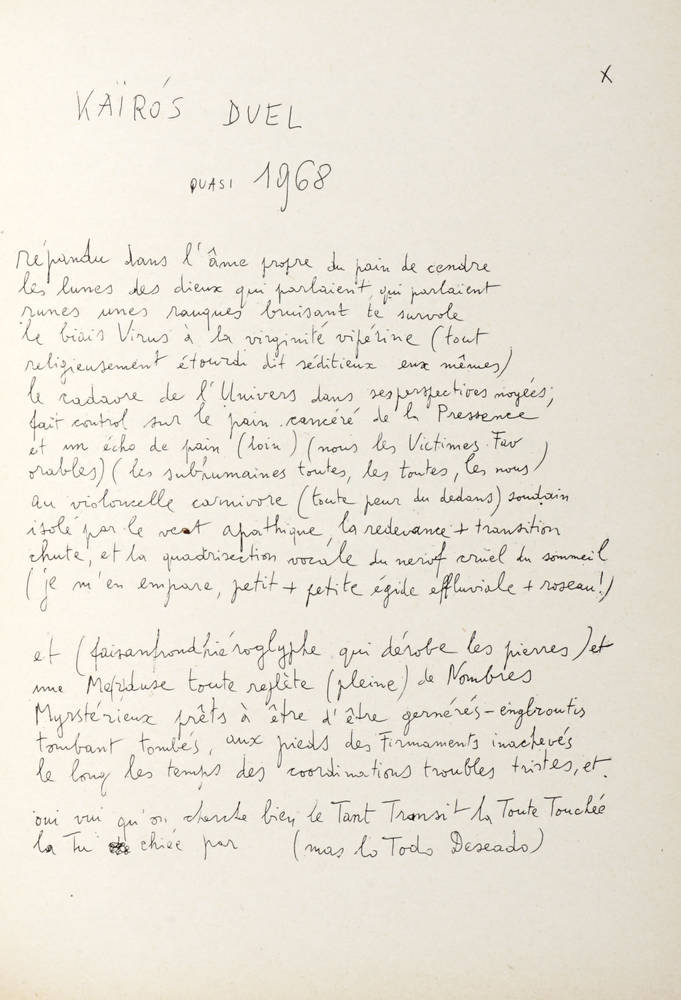 X
KAÏRÓS DUEL
QUASI 1968
répandu dans l'âme propre du pain de cendre
les lunes des dieux qui parlaient, qui parlaient
runes unes rauques bruisant te survole
le biais Virus à la virginité vipérine (tout
religieusement étourdi dit séditieux eux mêmes)
le cadavre de l'Univers dans ses perspectives noyées;
fait control sur le pain cancéré de la Pressence
et un écho de pain (loin) (nous les Victimes Fav
orables) (les subhumaines toutes, les toutes, les nous)
au violoncelle carnivore (toute peur du dedans) soudain
isolé par le vent apathique, la redevance + transition
chute, et la quadrisection vocale du nerf cruel du sommeil
(je m'en empare, petit + petite égide effluviale + roseau!)
et (faisanfrond'hiéroglyphe qui dérobe les pierres) et
une toute reflète (pleine) de Nombres
Myrstérieux prêts à être d'être gernérés-engloutis
tombant tombés, aux pieds des Firmaments inachevés
le long les temps des coordinations troubles tristes, et
oui vui qu'on cherche bien le Tant Transit la Toute Touchée
la Tu chiée par (mas lo Todo Deseado)